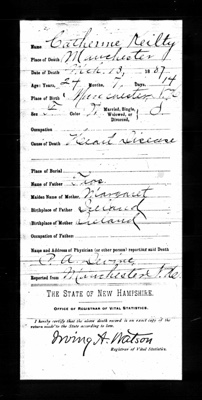 Name Catherine Reilty
Place of Death Manchester
Date of Death Mch. 13, 1887
Age: Years, Months, Days, 14
Place of Birth Manchester
Sex Color Married, Single, Widowed, or Divorced, S.
Occupation
Cause of Death Heart Disease
Place of Burial
Name of Father Thos
Maiden Name of Mother, Margaret
Birthplace of Father Ireland
Birthplace of Mother Ireland
Occupation of Father
Name and Address of Physician (or other person) reporting said Death
P. A. Devine
Reported from Manchester N.H.
THE STATE OF NEW HAMPSHIRE.
OFFICE OF REGISTRAR OF VITAL STATISTICS.
I hereby certify that the above death record is an exact copy of the return made to the State according to law.
Irving A. Watson
Registrar of Vital Statistics.